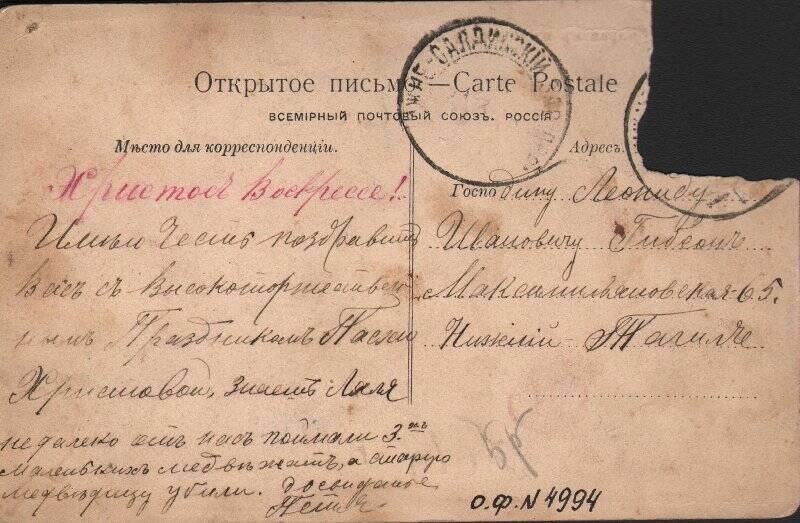 Открытое письмо — Carte Postale
ВСЕМІРНЫЙ ПОЧТОВЫЙ СОЮЗЪ. РОССІЯ
Мѣсто для корреспонденціи.
Адресъ.
Христосъ Воскресе!
Имѣю Честь поздравить
Васъ съ Высокоторжествен
нымъ Праздникомъ Пасхою
Христовой, знаетъ Ляля
недалеко отъ насъ поймали 3-хъ
маленькихъ медвѣжатъ, а старую
медвѣдицу убили. Досвиданье
Петя
Господину Леониду
Ивановичу Гибсонъ
Максимильяновская-65.
Нижній-Тагилъ
5р
О.Ф.N 4994
САЛДИНСКІЙ